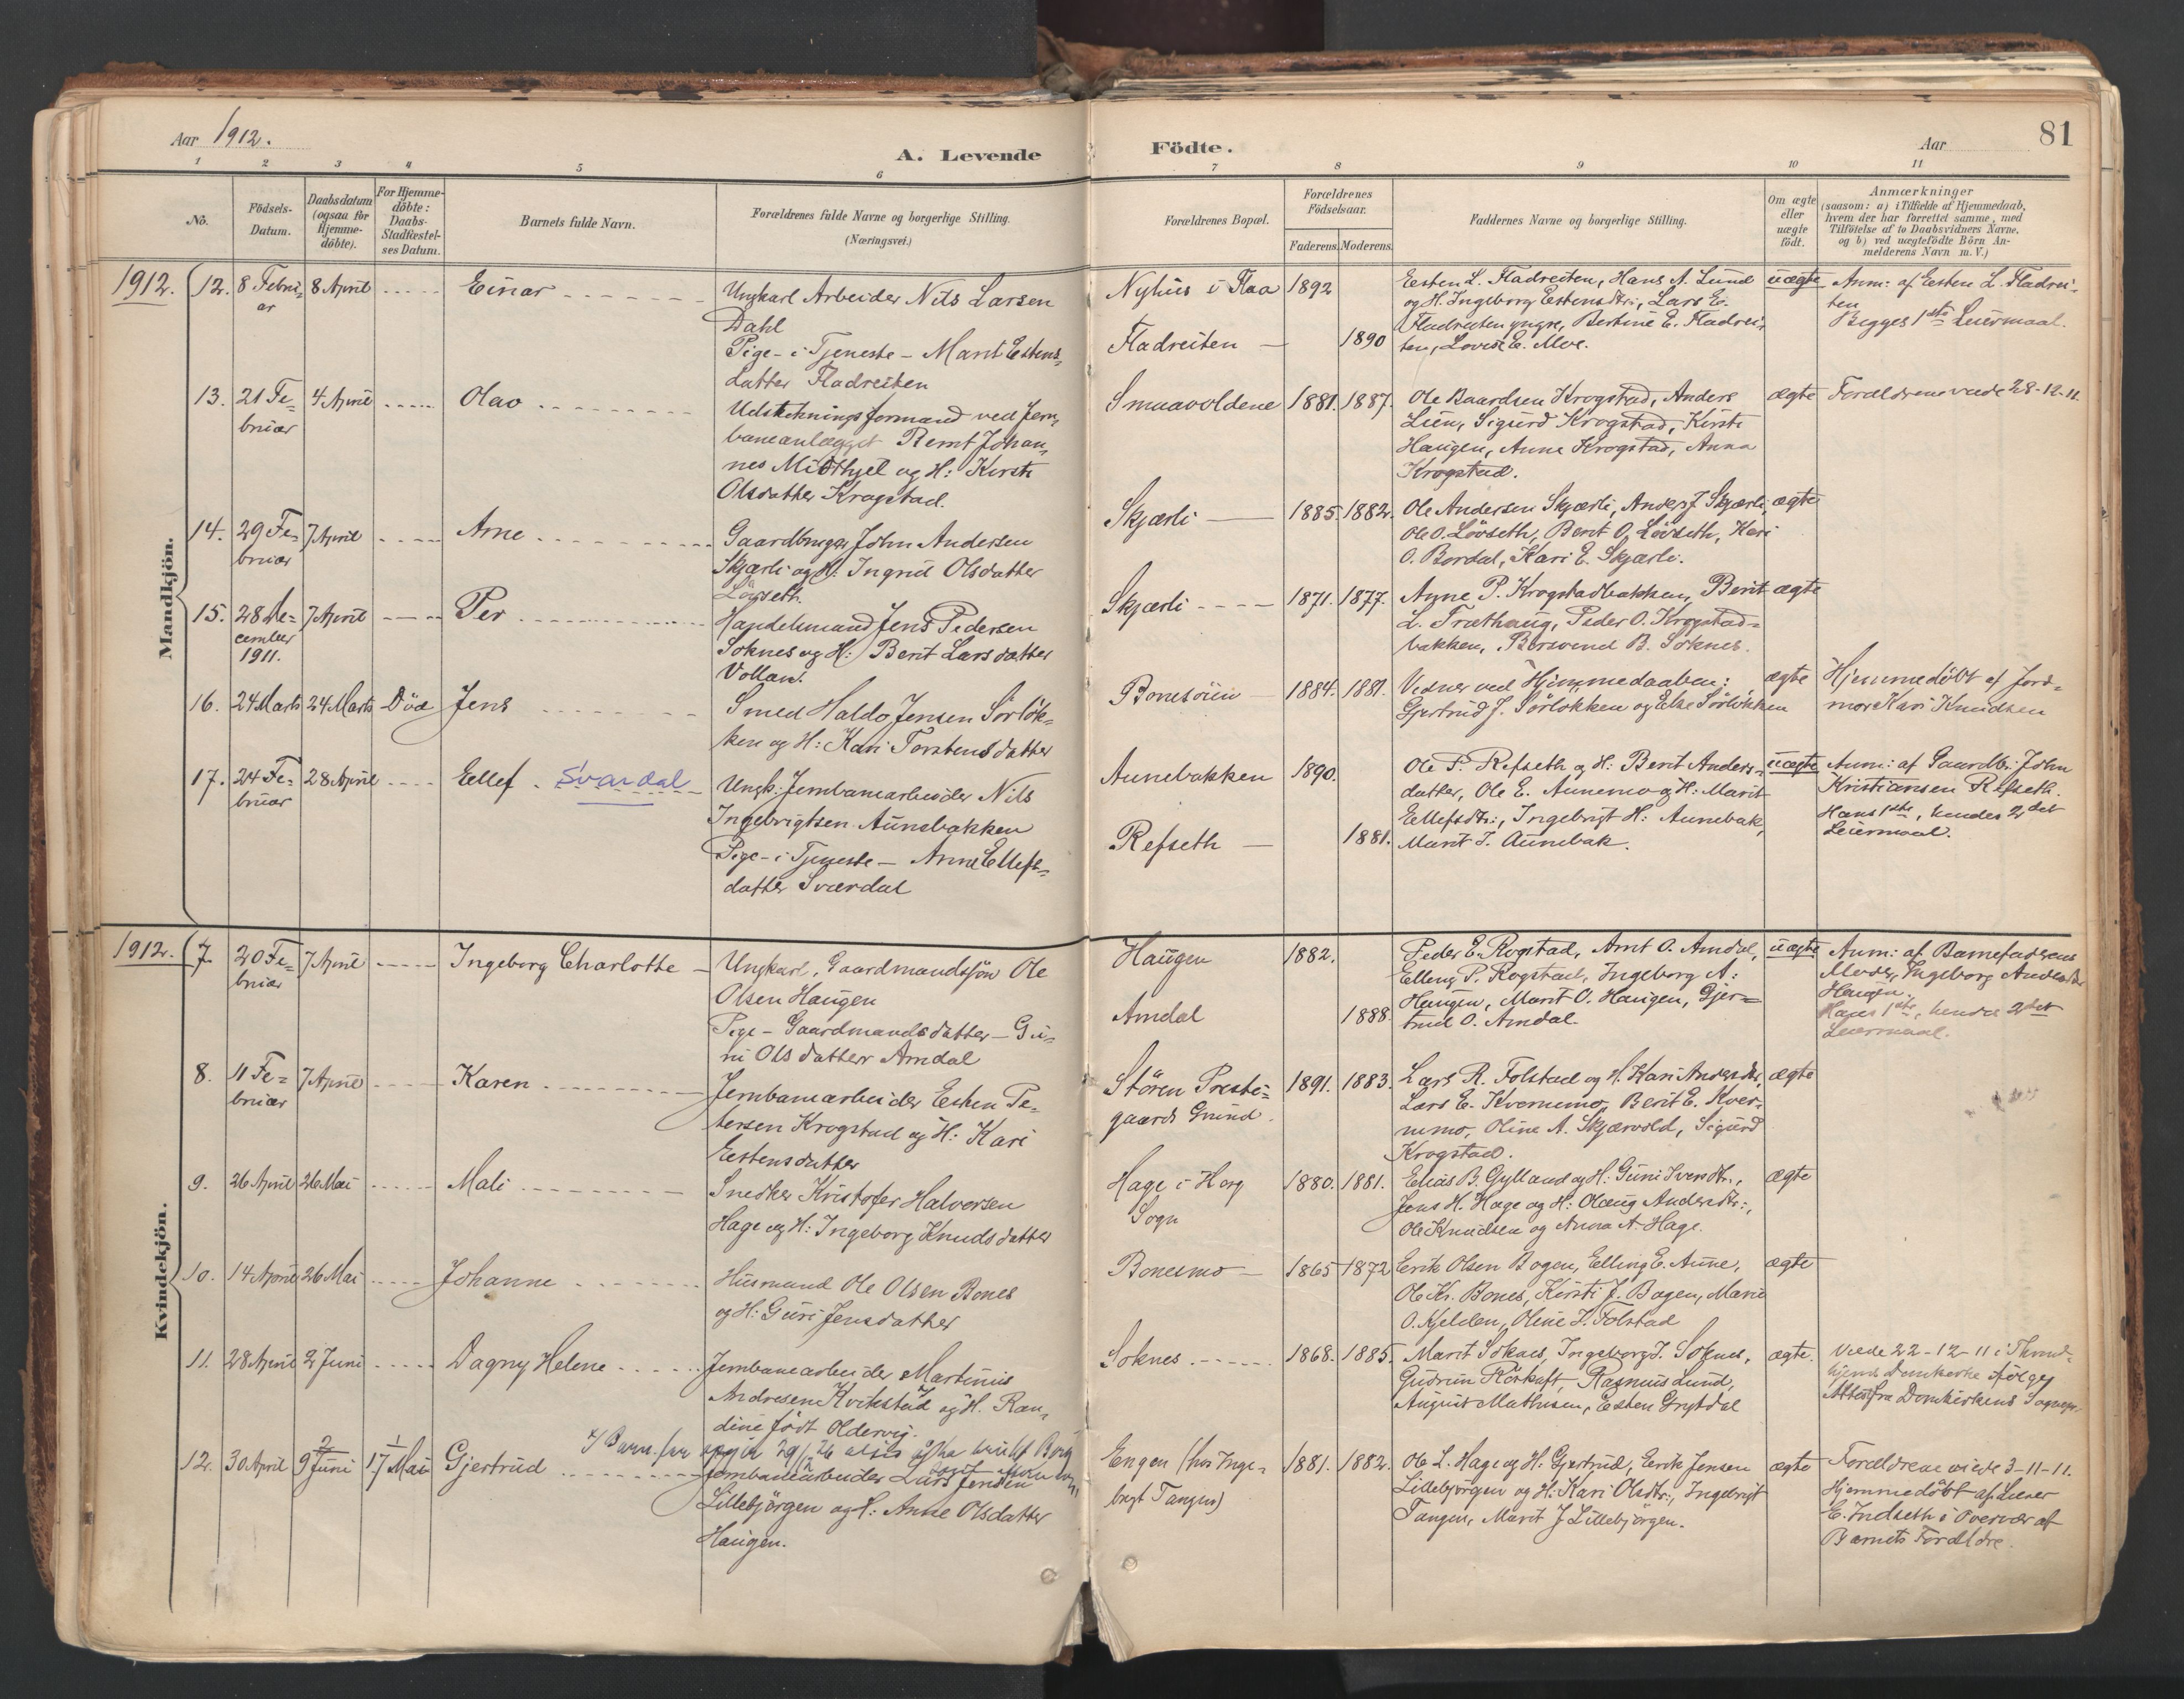 Aar 1912.
A. Levende Födte.
Aar
81
1 2 3 4 5 6 7 8 9 10 11
No.
Födsels-
Datum.
Daabsdatum
(ogsaa for
Hjemme-
döbte).
For Hjemme-
döbte:
Daabs-
Stadfæstel-
ses Datum.
Barnets fulde Navn.
Forældrenes fulde Navne og borgerlige Stilling.
(Næringsvei.)
Forældrenes Bopæl.
Forældrenes
Födselsaar.
Faderens. Moderens.
Faddernes Navne og borgerlige Stilling.
Om ægte
eller
uægte
født.
Anmærkninger
(saasom: a) i Tilfælde af Hjemmedaab,
hvem der har forrettet samme, med
Tilföielse af to Daabsvidners Navne,
og b) ved uægtefödte Börn An-
melderens Navn m. V.)
Mandkjön.
1912. 12. 8 Febru-
ar
8 April
Einar
Ungkarl Arbeider Nils Larsen
Dahl
Pige - i Tjeneste - Marit Estens-
datter Fladreiten
Nyhus i Flaa
Fladreiten
1892
1890
Esten L. Fladreiten, Hans A. Lund
og H. Ingeborg Estensdtr:, Lars E.
Fladreiten yngre, Bertine E. Fladrei-
ten, Lovise E. Moe.
uægte
Anm: af Esten L. Fladrei-
ten
Begges 1ste Leiermaal.
13. 21 Fe-
bruar
4 April
Olav
Udstikningsformand ved Jern-
baneanlægget Bernt Johan-
nes Midthjel og H: Kirsti
Olsdatter Krogstad.
Smaavoldene
1881. 1887.
Ole Baardsen Krogstad, Anders
Lien, Sigurd Krogstad, Kirsti
Haugen, Anne Krogstad, Anna
Krogstad.
ægte
Forældrene viede 28-12-11.
14. 29 Fe-
bruar
7 April
Arne
Gaardbruger John Andersen
Skjærli og H: Ingrid Olsdatter
Lövseth.
Skjærli
1885. 1882.
Ole Andersen Skjærli, Anders J Skjærli,
Ole O. Lövseth, Berit O. Lövseth, Kari
O. Bordal, Kari E. Skjærli.
ægte
15. 28 De-
cember
1911.
7 April
Per
Handelsmand Jens Pedersen
Soknes og H: Berit Larsdatter
Vollan.
Skjærli
1871. 1877.
Anne P. Krogstadbakken, Berit
L. Træthaug, Peder O. Krogstad-
bakken, Bersvend B. Soknes.
ægte
16. 24 Marts 24 Marts Död
Jens
Smed Haldo Jensen Sörlök-
ken og H: Kari Torstensdatter
Bonesöien
1884. 1881.
Vidner ved Hjemmedaaben:
Gjertrud J. Sörlökken og Else Sörlökken
ægte
Hjemmedöbt af Jord-
mor Kari Knudsen
17. 24 Fe-
bruar
28 April
Ellef Svardal
Ungk: Jernbanearbeider Nils
Ingebrigtsen Aunebakken
Pige - i Tjeneste - Anne Ellefs-
datter Sværdal
Aunebakken
Refseth
1890.
1881.
Ole P. Refseth og H: Berit Anders-
datter, Ole E. Aunemo og H: Marit
Ellefsdtr:, Ingebrigt H: Aunebak,
Marit I. Aunebak.
uægte
Anm: af Gaardbr. John
Kristiansen Refseth.
Hans 1ste, hendes 2det
Leiermaal.
Kvindekjön.
1912. 7. 20 Fe-
bruar
7 April
Ingeborg Charlotte
Ungkarl, Gaardmandssön Ole
Olsen Haugen
Pige - Gaardmandsdatter - Gu-
ri Olsdatter Amdal
Haugen
Amdal
1882.
1888.
Peder E. Rogstad, Arnt O. Amdal,
Elling P. Rogstad, Ingeborg A:
Haugen, Marit O. Haugen, Gjer-
trud O. Amdal.
uægte
Anm: af Barnefaderens
Moder, Ingeborg Andersdtr
Haugen.
Hans 1ste, hendes 2det
Leiermaal.
8. 11 Fe-
bruar
7 April
Karen
Jernbanearbeider Esten Pe-
tersen Krogstad og H: Kari
Estensdatter
Stören Preste-
gaards Grund.
1891. 1883.
Lars R. Folstad og H. Kari Andersdtr,
Lars E. Kvernmo, Berit E. Kver-
nmo, Oline A. Skjærvold, Sigurd
Krogstad.
ægte
9. 26 April 26 Mai
Mali
Snedker Kristofer Halvorsen
Hage og H: Ingeborg Knudsdatter
Hage i Horg
Sogn
1880. 1881.
Elias B. Gylland og H: Guri Svendtr.,
Jens H. Hage og H: Olaug Andersdtr:,
Ole Knudsen og Anna A. Hage.
ægte
10. 14 April 26 Mai
Johanne
Husmand Ole Olsen Bones
og H: Guri Jensdatter
Bonesmo
1865 1872
Erik Olsen Bogen, Elling E. Aune,
Ole Kr. Bones, Kirsti J. Bogen, Marie
O. Kjelden, Oline L. Folstad
ægte
11. 28 April 2 Juni
Dagny Helene
Jernbanearbeider Martinus
Andresen Kvitstad og H. Ran-
dine födt Oldervig.
Soknes
1868. 1885.
Marit Soknes, Ingeborg J. Soknes,
Gudrun Rörhaft, Rasmus Lund,
August Mathisen, Esten Grytdal
ægte.
Viede 22-12-11 i Thrond-
hjems Domkirke ifölge
Attest fra Domkirkens Sognepr.
12. 30 April 9 Juni 17 Mai
Gjertrud
Jernbanearbeider Lars Jensen
Lillebjörgen og H: Anne Olsdatter
Haugen.
Engen (hos Inge-
brigt Tangen)
1881. 1882.
Ole L. Hage og H. Gjertrud, Eerik Jensen
Lillebjörgen og H: Kari Olsdtr:, Ingebrigt
Tangen, Marit J Lillebjörgen.
ægte
Forældrene viede 3-11-11.
Hjemmedöbt af Lærer
E. Indseth i Overvær af
Barnets Forældre.